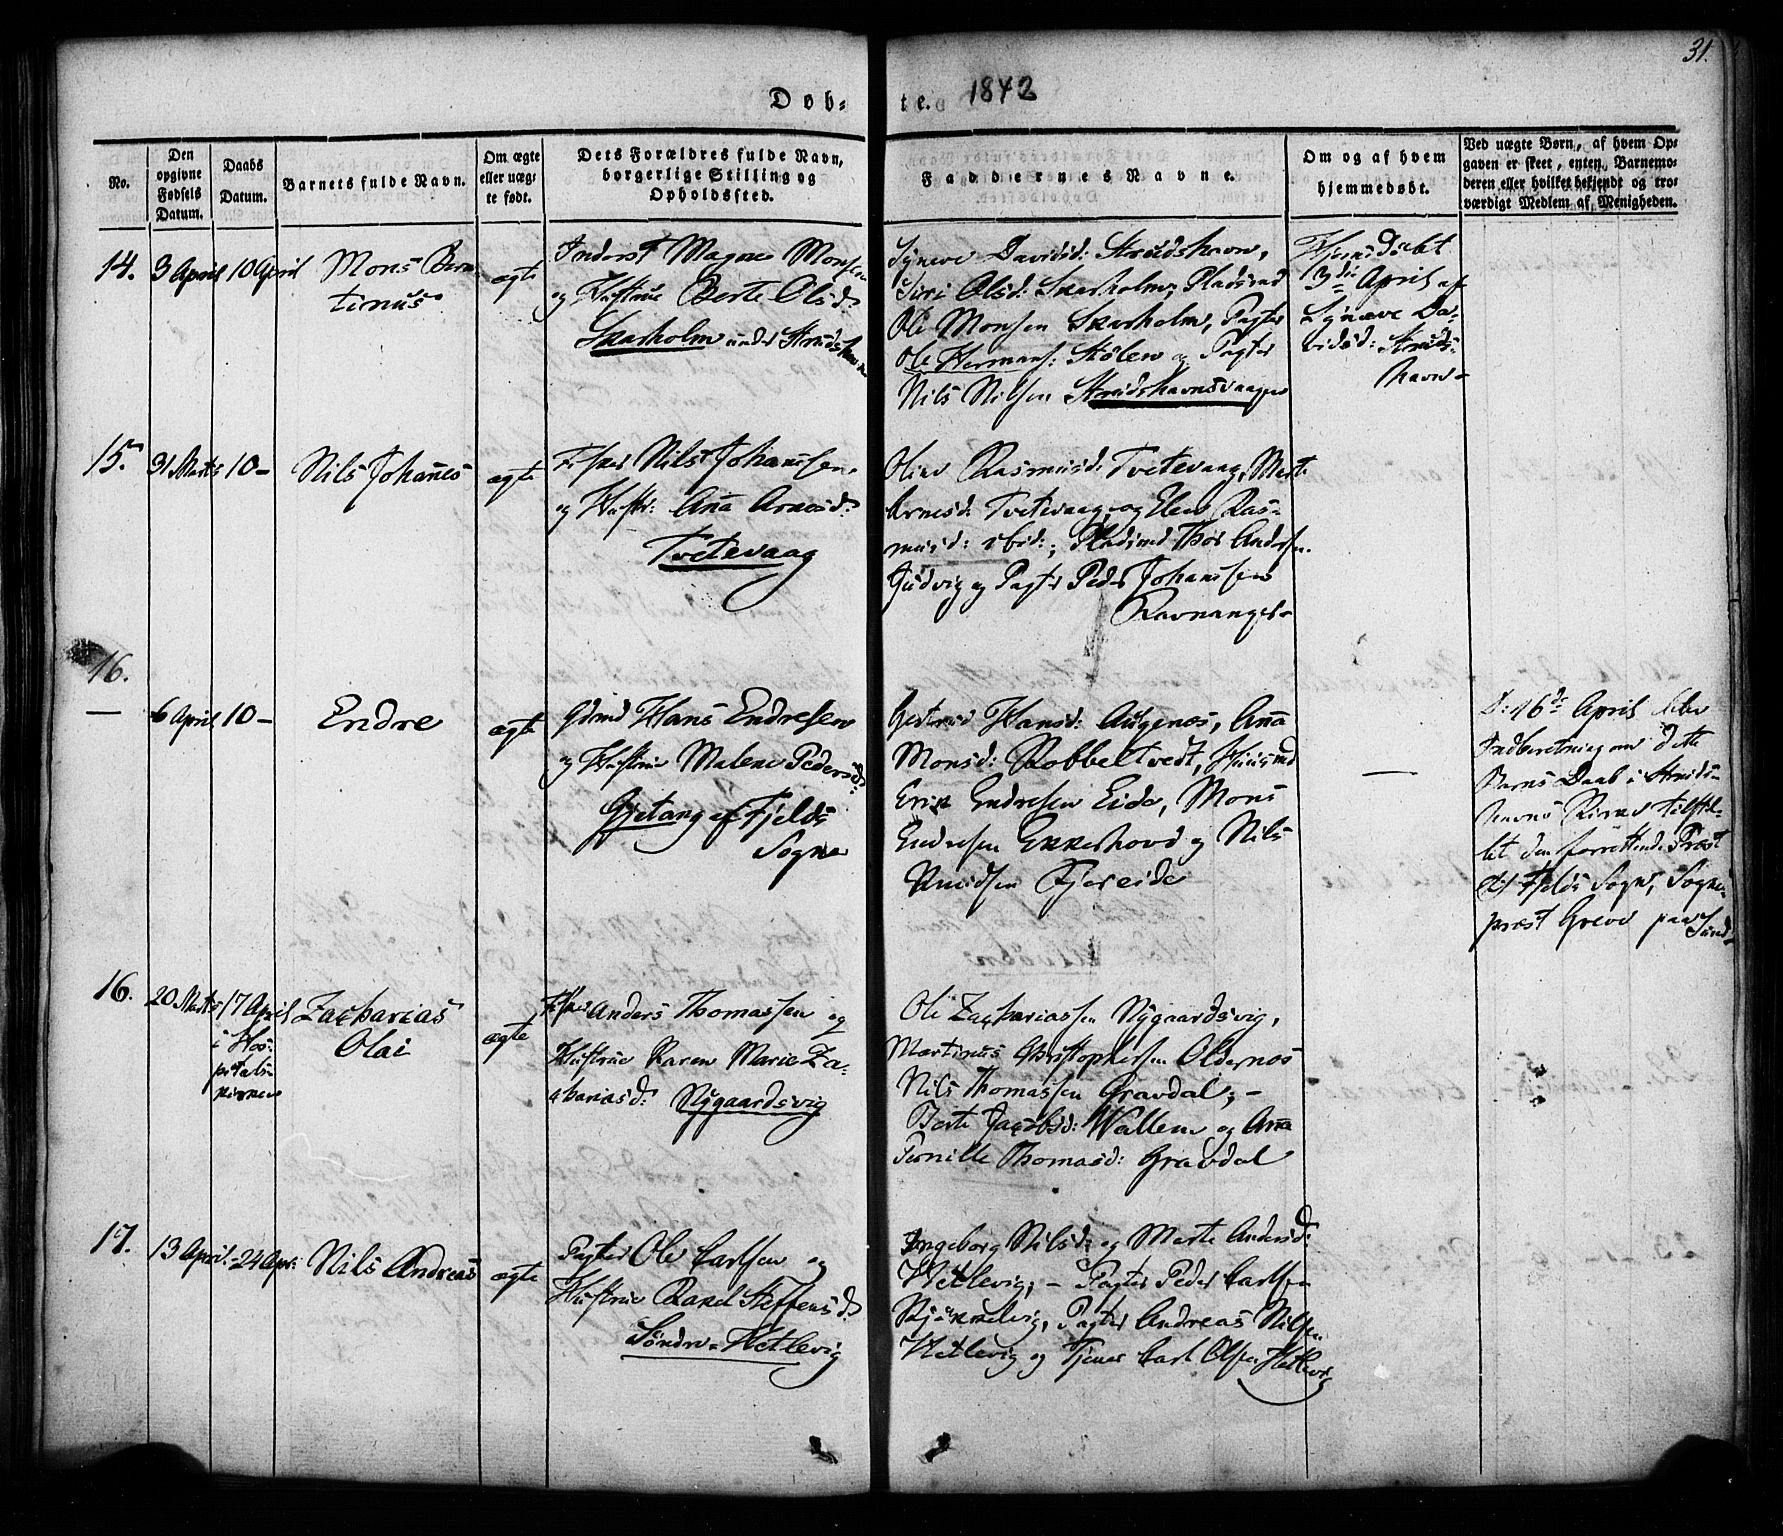 31.
Døb-
te. 1842
No.
Den
opgivne
Fødsels
Datum.
Daabs
Datum.
Barnets fulde Navn.
Om ægte
eller uæg-
te født.
Dets Forældres fulde Navn,
borgerlige Stilling og
Opholdssted.
Faddernes Navne.
Om og af hvem
hjemmedøbt.
Ved uægte Børn, af hvem Op-
gaven er skeet, enten Barnemo-
deren eller hvilket bekjendt og tro-
værdigt Medlem af Menigheden.
14.
3 April
10 April
Mons Bern
tinus
ægte
Inderst Magne Monsen
og Hustrue Berte Olsd:
Skarholm under Strudshavn
Syneve Davidsd: Strudshavn,
Siri Olsd: Skarholm; Pladsmd
Ole Monsen Skarholm, Pagter
Ole Hermans: Stølen og Pagter
Nils Nilsen Strudshavnsvaagen
Hjemdøbt
3die April af
Synneve Da-
vidsd: Struds-
havn-
15.
31 Marts
10-
Nils Johanes
ægte
Fisker Nils Johannssen
og Hustr: Ana Arnesd:
Tvetevaag
Oline Rasmusd: Tvetevaag, Marte
Arnesd: Tvetevaag og Elen Ras-
musd: ibid:, Pladsmd Thor Andersen
Gudvig og Pagter Peder Johanssen
Ravnanger-
16.
6 April
10-
Endre
ægte
Gdmd Hans Endresen
og Hustrue Malene Pedersd:
Gjetang af Fjelds
Sogn
Gertrud Hansd: Augenos, Ana
Monsd: Kobbeltvedt, Huusmd
Erik Endresen Eide, Mons
Endresen Ekkerhovd og Nils
Knudsen Fjereide
D: 16de April blev
Indberetning om dette
Barns Daab i Struds-
havns Kirke tilstil-
let den forrettende Præst
til Fjelds Sogn, Sogne-
præst Greve paa Sund
16.
20 Marts
17 April
i Hos-
pitals
kirken
Zacharias
Olai
ægte
Fisker Anders Thomassen og
Hustrue Karen Marie Za-
chariasd: Nygaardsvig
Ole Zachariassen Nygaardsvig,
Martinus Christophersen Oldernos
Nils Thomassen Gravdal; -
Berte Jacobsd: Wallem og Ana
Pernille Thomasd: Gravdal
17.
13 April
24 Apr:
Nils Andreas
ægte
Pagter Ole Carlsen og
Hustrue Rakel Steffensd:
Søndre Hetlevig
Ingeborg Nilsd: og Marte Andersd:
Hetlevig; - Pagter Peder Carlsen
Skjækkelvig, Pagter Andreas Nilsen
Hetlevig og Tjener Carl Olsen Hetlevig